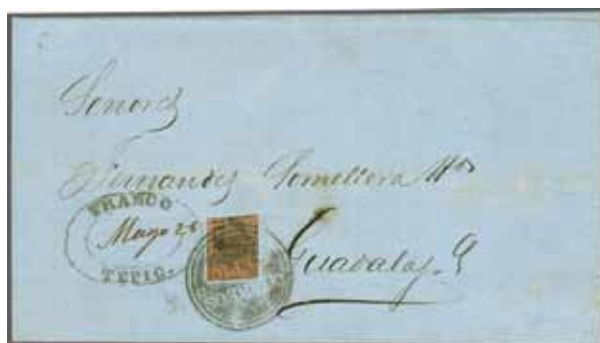 Señores
Fernandez Somellera Hos
FRANCO
Mayo 26
TEPIC.
Guadalaj.a